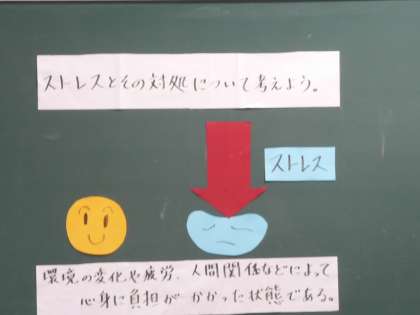 ストレスとその対処について考えよう。
ストレス
環境の変化や疲労、人間関係などによって
心身に負担がかかった状態である。